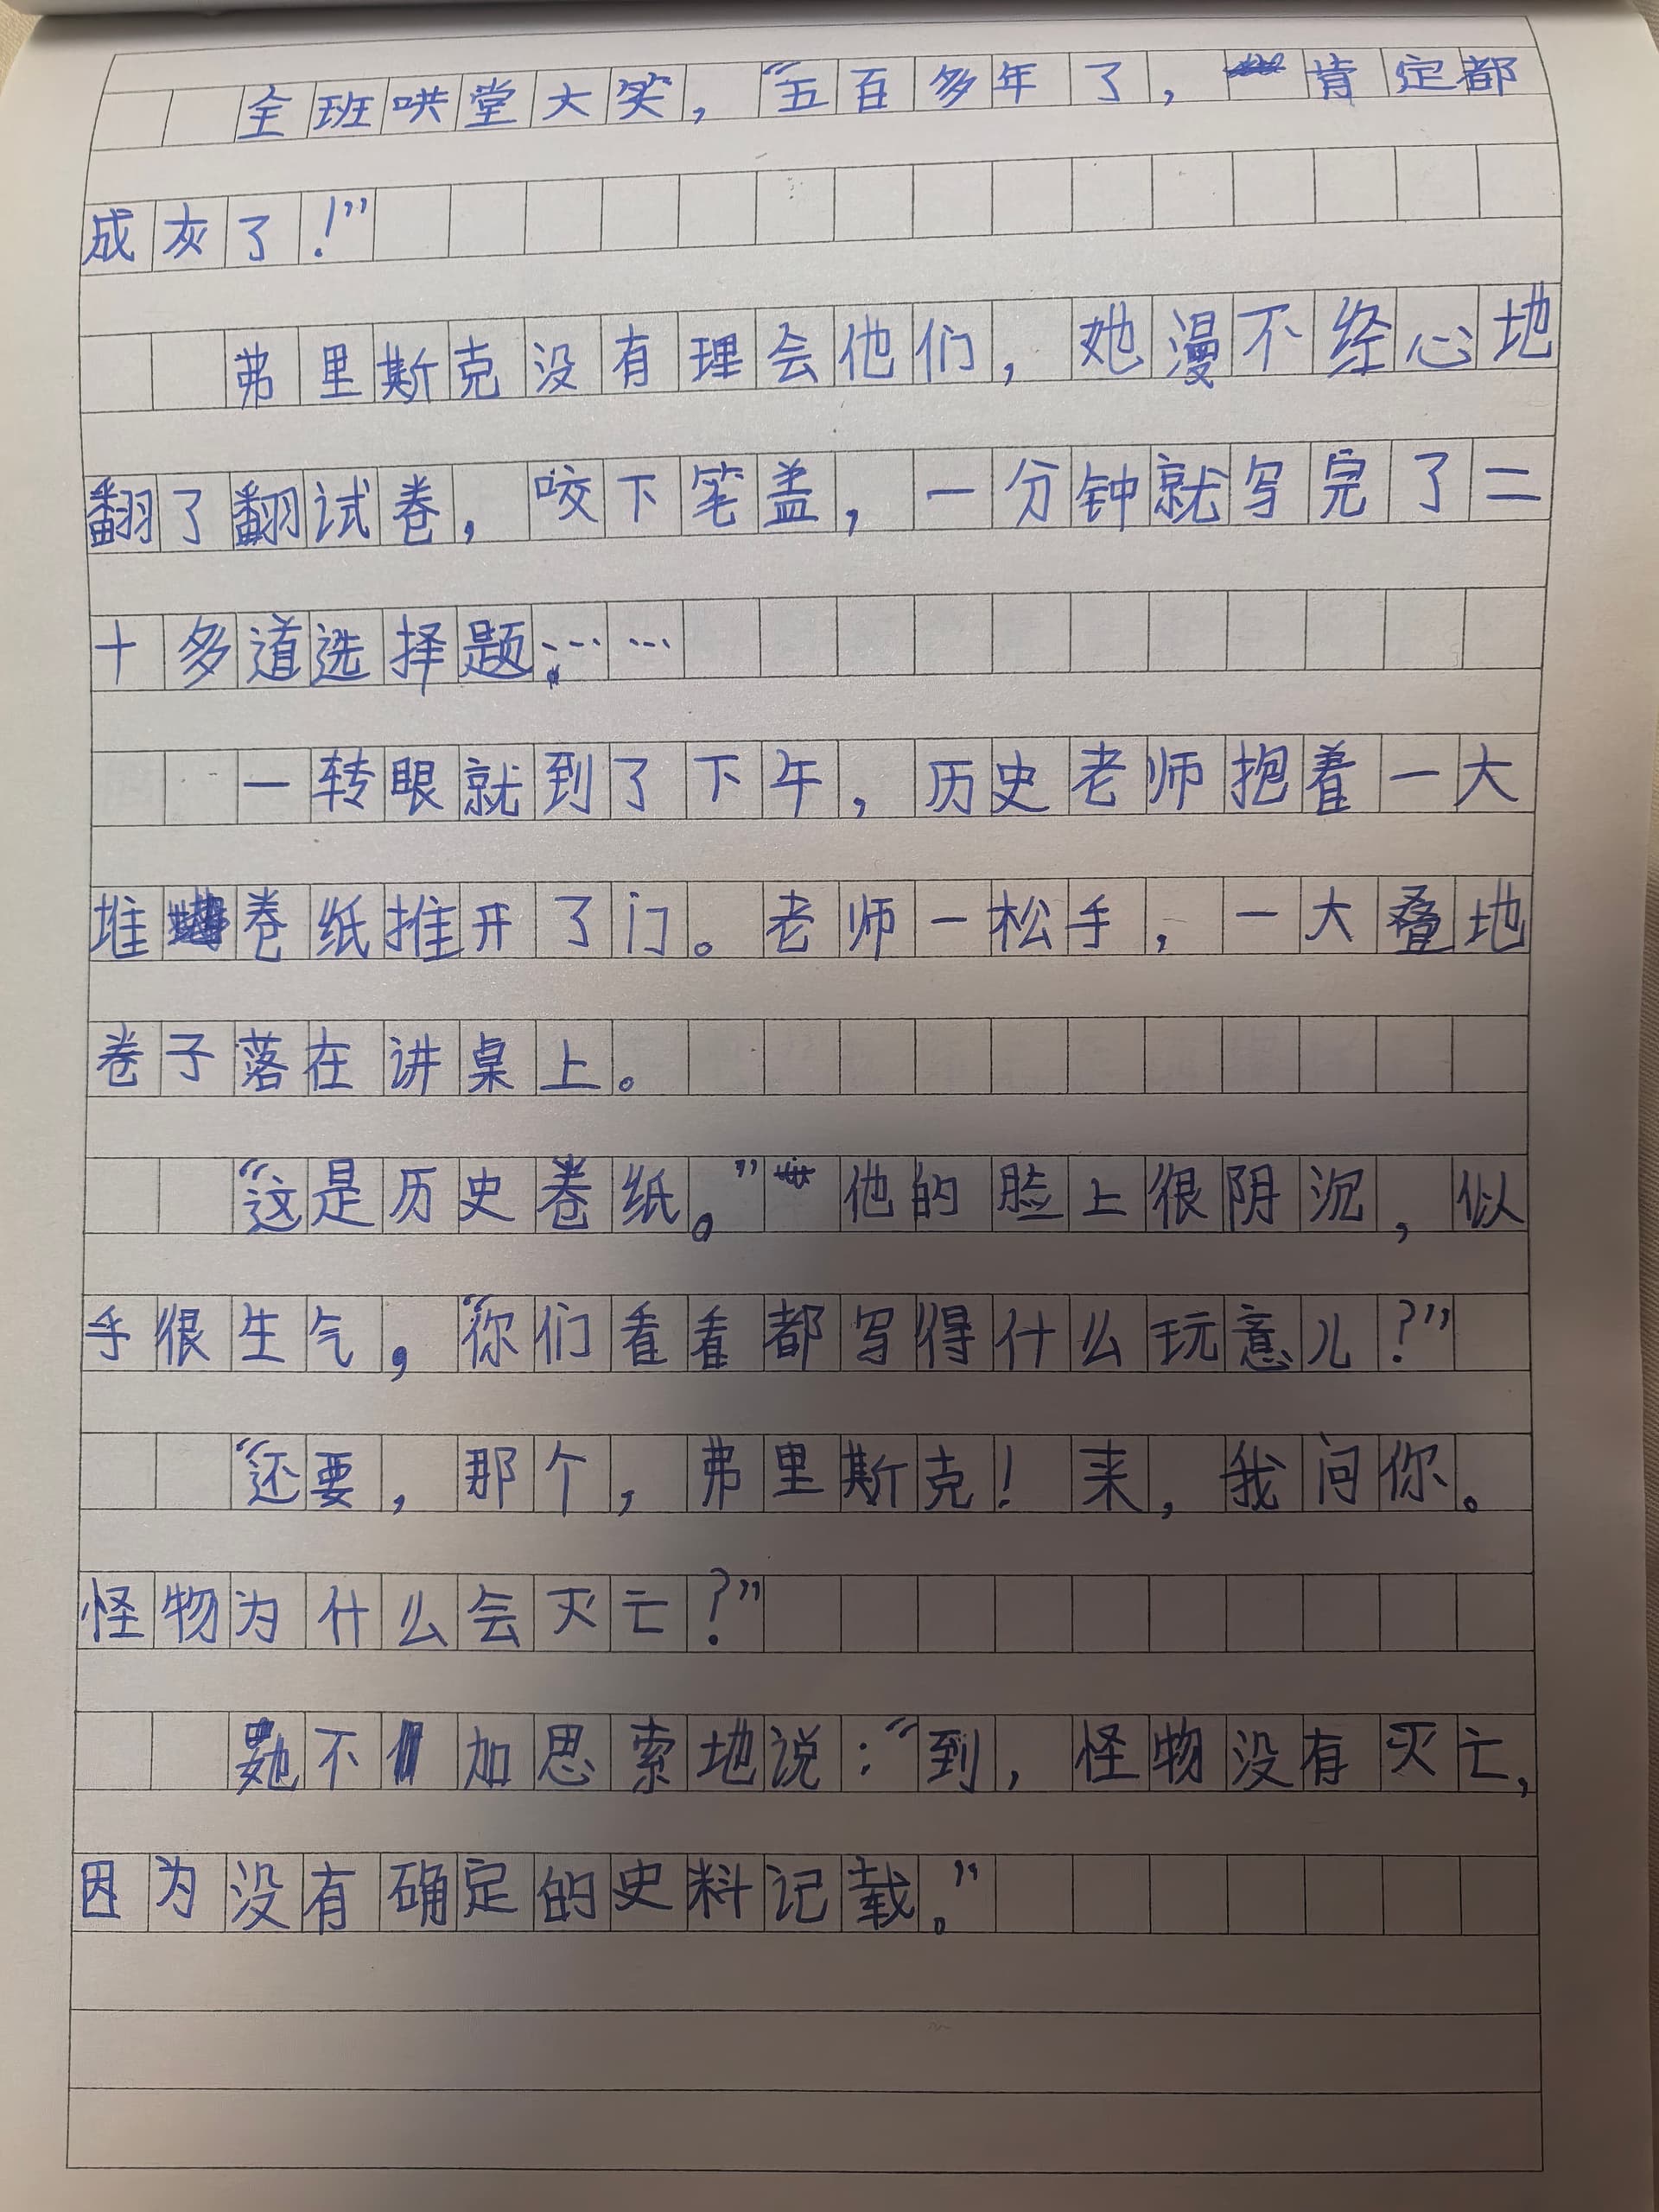 全班哄堂大笑，“五百多年了，肯定都
成灰了！”
弗里斯克没有理会他们，她漫不经心地
翻了翻试卷，咬下笔盖，一分钟就写完了二
十多道选择题……
一转眼就到了下午，历史老师抱着一大
堆卷纸推开了门。老师一松手，一大叠地
卷子落在讲桌上。
“这是历史卷纸。”他的脸上很阴沉，似
乎很生气，“你们看看都写得什么玩意儿？”
“还要，那个，弗里斯克！来，我问你。
怪物为什么会灭亡？”
她不加思索地说：“到，怪物没有灭亡，
因为没有确定的史料记载。”